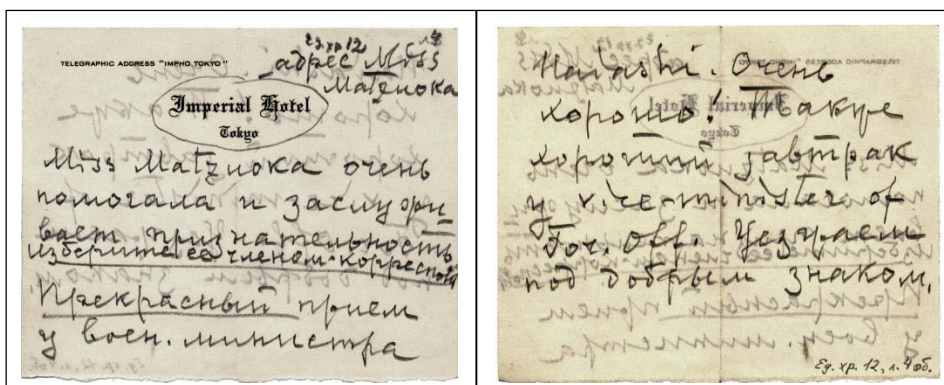 Ед. хр 12 л. 4
TELEGRAPHIC ADDRESS "IMPHO TOKYO"
адрес Miss
Matzuoka
Imperial Hotel
Tokyo
Miss Matzuoka очень
помогала и заслужи
вает признательность
изберите ее членом-корреспонд
Прекрасный прием
у воен. министра
Hayashi. Очень
хорошо! Также
хороший завтрак
у vice-minister of
For. Off. Уезжаем
под добрым знаком.
Ед. хр. 12, л. 4 об.